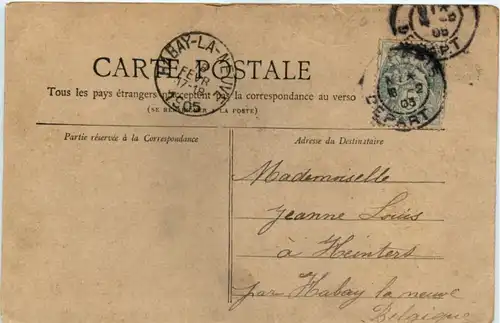 HABAY-LA-NEUVE
FEVR
17-18
05
DEPART
05
DEPART
05
CARTE POSTALE
Tous les pays étrangers n'acceptent pas la correspondance au verso
(SE RENSEIGNER A LA POSTE)
Partie réservée à la Correspondance
Adresse du Destinataire
Mademoiselle
Jeanne Louis
à Heinters
par Habay la neuve
Belgique